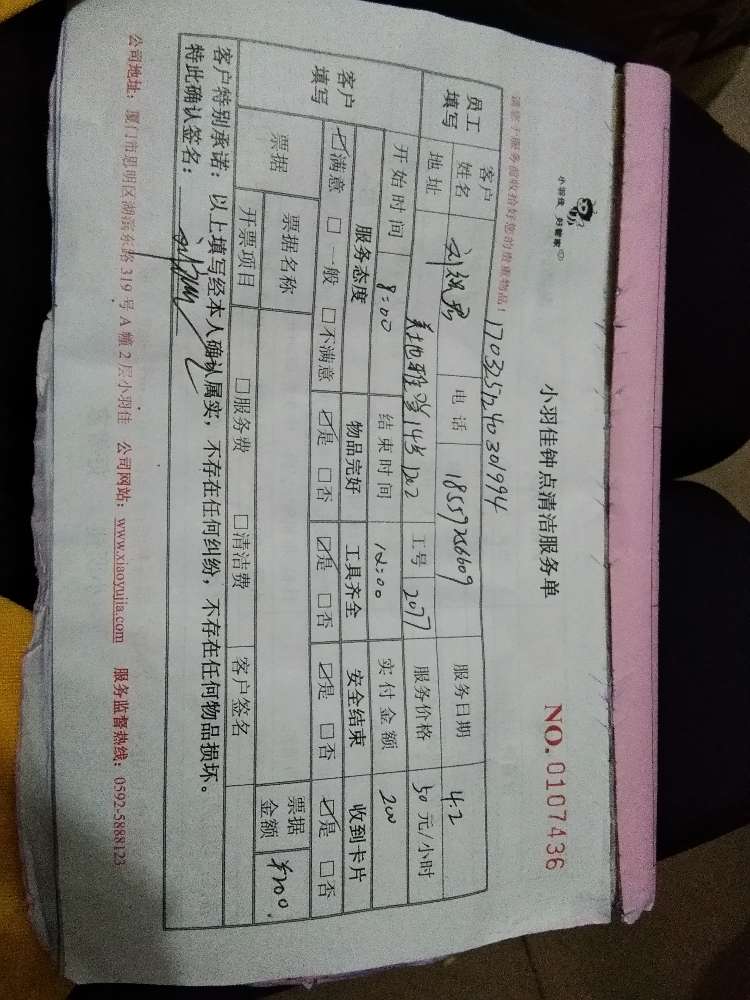 小羽佳 好管家
小羽佳钟点清洁服务单
NO. 0107436
请您于服务前收拾好您的贵重物品！
170325724030199 4
员工填写 客户姓名 电话 18559256609 服务日期 4.2
地址 美地雅登14 1202 工号 2077 服务价格 50 元/小时
开始时间 8:00 结束时间 12:00 实付金额 200
客户填写 服务态度 物品完好 工具齐全 安全结束 收到卡片
☑满意 □一般 □不满意 ☑是 □否 ☑是 □否 ☑是 □否 ☑是 □否
票据 票据名称 票据金额 ¥200.
开票项目 □服务费 □清洁费 客户签名
客户特别承诺：以上填写经本人确认属实，不存在任何纠纷，不存在任何物品损坏。
特此确认签名：
公司地址：厦门市思明区湖滨东路 319 号 A 幢 2 层小羽佳 公司网站：www.xiaoyujia.com 服务监督热线：0592-5888123